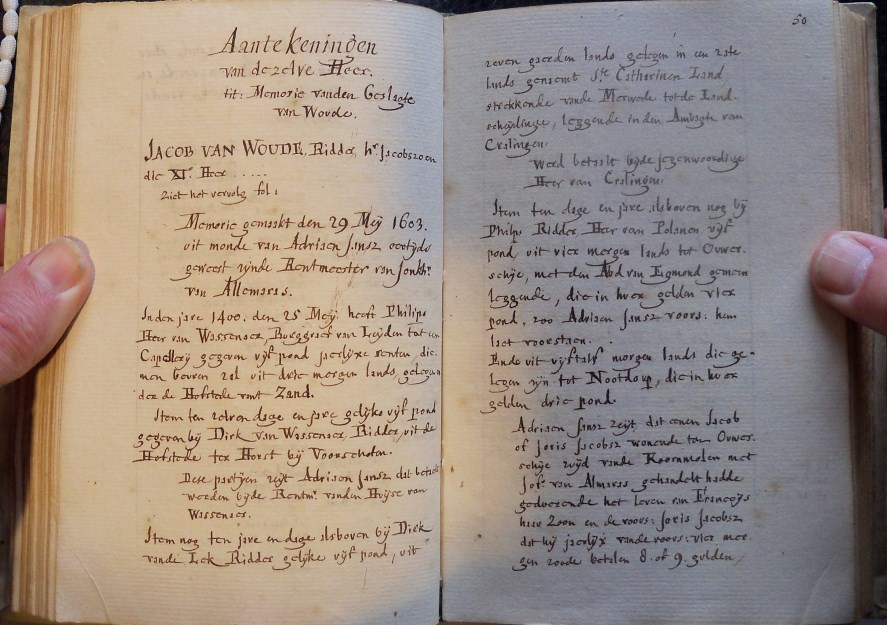 Aantekeningen
van dezelve Heer.
tit: Memorie vanden Geslagte
van Woude.
JACOB VAN WOUDE, Ridder, hr. Jacobszoen
die XIe. Heer .....
Ziet het vervolg fol:
Memorie gemaakt den 29 Meÿ 1603.
uit monde van Adriaen Jansz eertÿds
geweest zÿnde Rentmeester van Jonkhr.
van Allemaras.
In den jare 1400. den 25 Meÿ. heeft Philips
Heer van Wassenaer, Burggraef van Leÿden tot een
Capellerÿ gegeven vÿf pond jaerlÿxe renten, die
men beuren zal uit drie morgen lands, gelegen
der de Hofstede vant Zand.
Item ten zelven dage en jare gelÿke vÿf pond
gegeven bÿ Dirk van Wassenaer, Ridder, uit de
Hofstede ter Horst bÿ Voorschoten.
Deze partÿen zeÿt Adriaen Jansz dat betaelt
werden bÿde Rentmr. vanden Huÿse van
Wassenaer.
Item nog ten jare en dage alsboven bÿ Dirk
vande Lek Ridder gelÿke vÿf pond, uit
50
zeven gaerden lands gelegen in een zate
lands genaemt Ste. Catharinen Land
strekkende vande Merwede tot de Land-
scheÿdinge, leggende in den Ambagte van
Cralingen.
Werd betaelt bÿde jegenwoordige
Heer van Cralingen.
Item ten dage en jare alsboven nog bÿ
Philips Ridder, Heer van Polanen vÿf
pond uit vier morgen lands tot Ouwer-
schie, met den Abd van Egmond gemeen
leggende, die in huer gelden vier
pond, zoo Adriaen Jansz voors: hem
laet voorstaen.
Ende uit vÿftalf morgen lands die ge-
legen zÿn tot Nootdorp, die in huer
gelden drie pond.
Adriaen Jansz zeÿt dat eenen Jacob
of Joris Jacobsz wonende tot Ouwer-
schie zuÿd vande Koornmolen met
Jofr. van Almaras gehandelt hadde
geduerende het leven van Françoÿs
haer Zoon en de voors: Joris Jacobsz
dat hÿ jaerlÿx vande voors: vier mor-
gen zoude betalen 8. of 9. gulden,